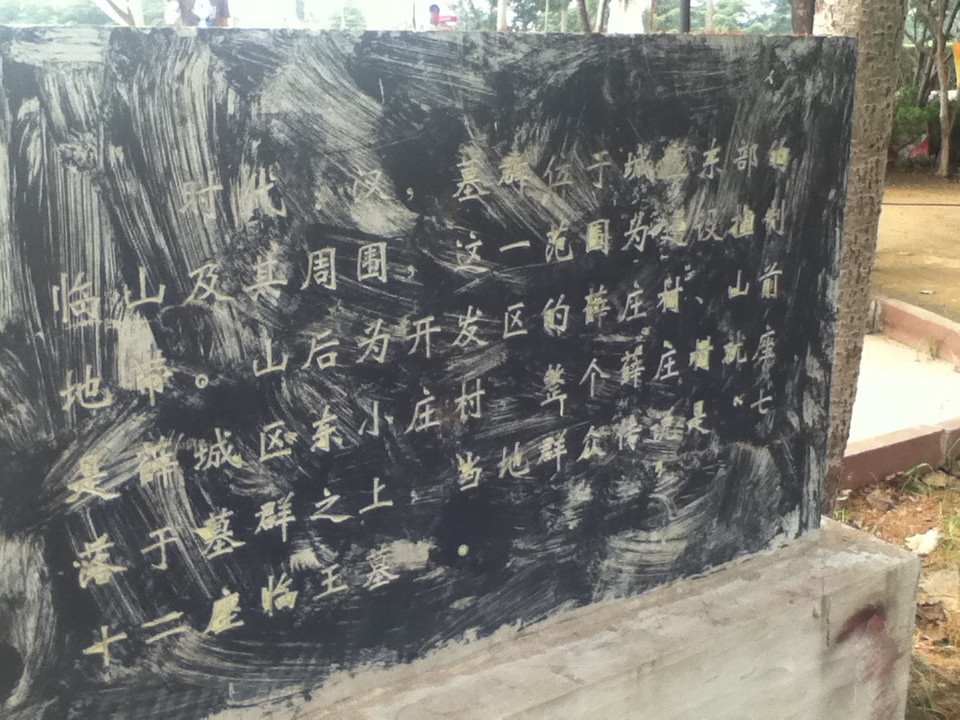 时代:汉,墓群位于城 东部的
临山及其周围,这一范围为建设控制
地带。山后为开发区的薛庄村、山前
是薛城区东小庄村 整个薛庄村就座
落于墓群之上。当地群众传 是“七
十二座临王墓 。